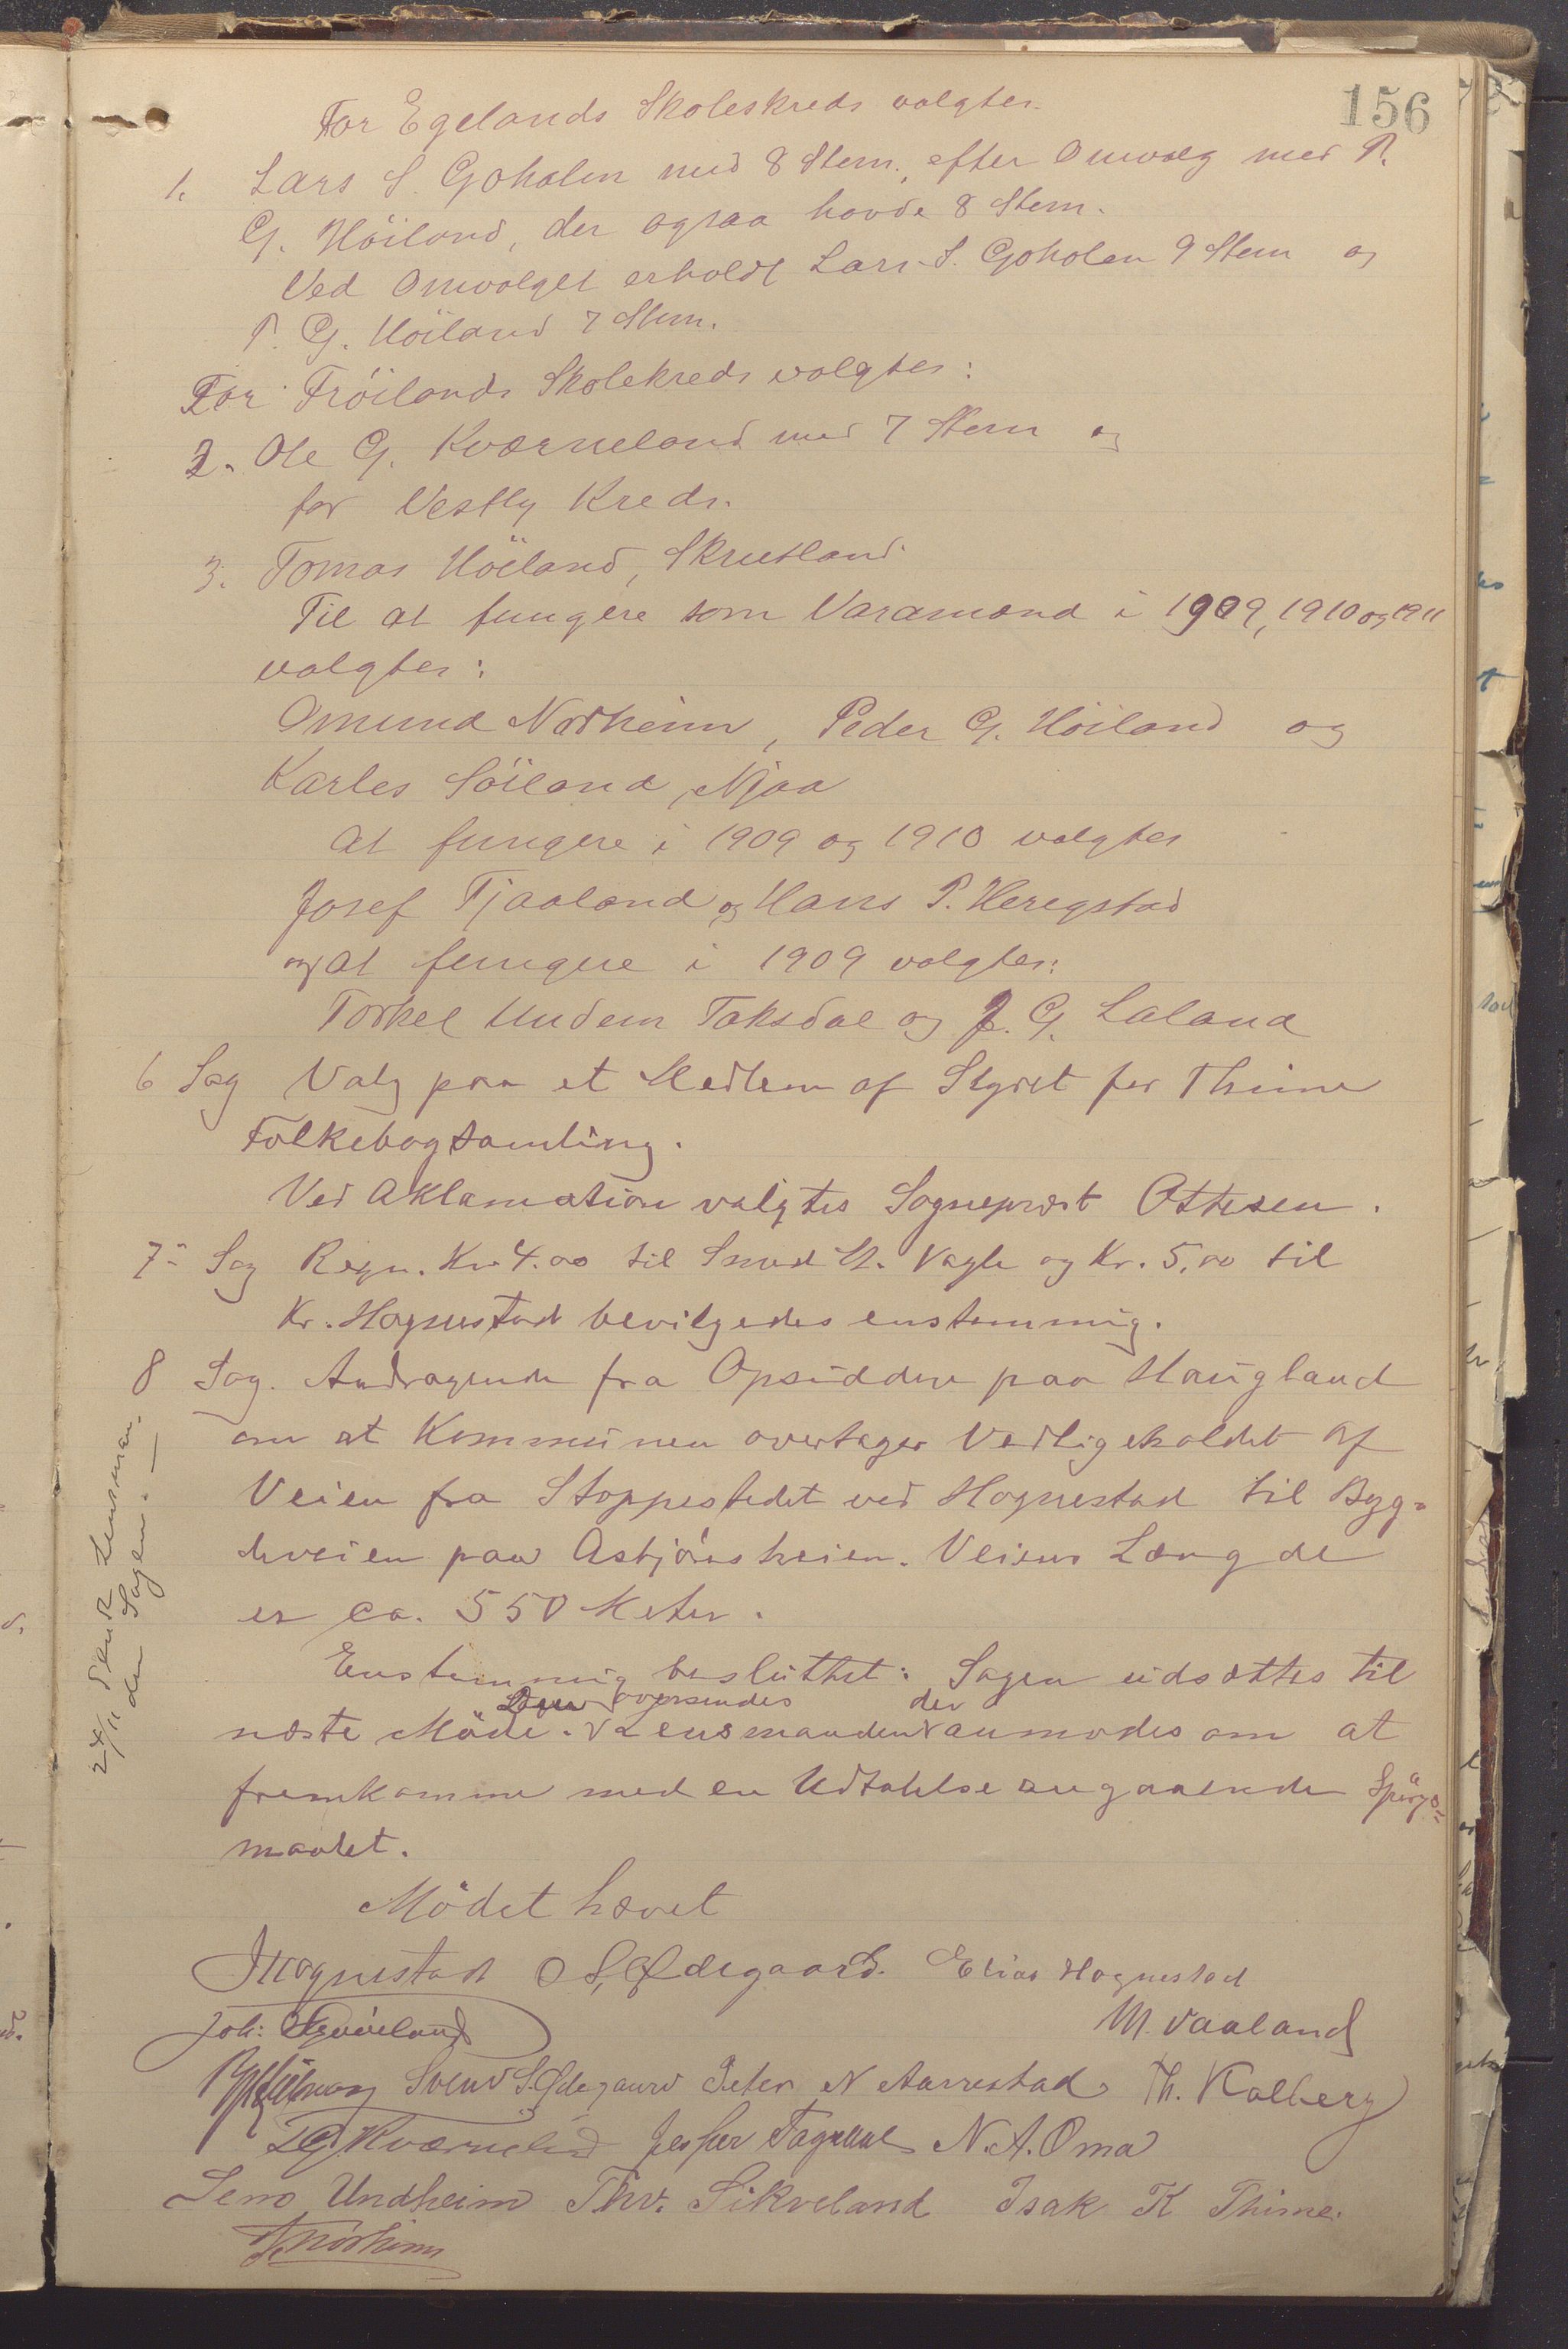 156
For Egelands Skoleskreds valgtes.
1. Lars S. Goholen med 8 Stem., efter Omvalg med P.
G. Höiland, der ogsaa havde 8 Stem.
Ved Omvalget erholdt Lars S. Goholen 9 Stem og
P. G. Höiland 7 Stem.
For Fröilands Skolekreds valgtes:
2. Ole G. Kværneland med 7 Stem og
for Vestly Kreds.
3. Tomas Höiland, Skrutland
Til at fungere som Varamænd i 1909, 1910 og 1911
valgtes:
Omund Nordheim, Peder G. Höiland og
Karles Söiland, Njaa
at fungere i 1909 og 1910 valgtes
Josef Tjaaland og Hans P. Heregstad
og at fungere i 1909 valgtes:
Torkel Undem Taksdal og J. G. Laland
6 Sag Valg paa et Medlem af Styret for Thime
Folkebogsamling.
Ved Aklamation valgtes Sogneprest Ottesen.
7- Sag Regn. Kr. 4.00 til Smed Vagle og Kr. 5.00 til
Kr. Hognestad bevilgedes enstemmig.
8 Sag. Andragende fra Opsiddere paa Haugland
om at Kommunen overtager Vedligeholdet af
Veien fra Stoppestedet ved Hognestad til Byg-
deveien paa Asbjörnsheien. Veiens Længde
er ca. 550 Meter.
Enstemmig besluttet: Sagen udsættes til
Sagen oversendes der
næste Möde. Lensmanden anmodes om at
fremkomme med en Udtalelse angaaende Spörgs-
maalet.
24/11 Sendt Lensman.
den Sagen. —
Mödet hævet
J Hognestad O S, Ødegaard. Elias Hognestad
Joh: M. Vaaland
Svend S. Ødegaard Peter N Aarrestad Th. Kalberg
Kværneland Jesper N. A. Oma
Lens Undheim Thv. Sikveland Isak K Thime.